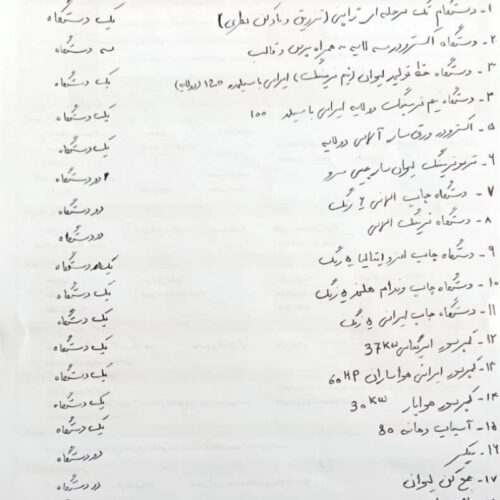 ۱- دستگاه تک مرحله ای ژاپنی (تزریق و بادکن بطری) یک دستگاه
۲- دستگاه اکسترودر سه لایه به همراه پرس و قالب سه دستگاه
۳- دستگاه خط تولید لیوان (نیم فرمینگ) ایرانی با سیلندر ۱۲۰ (دولایه) یک دستگاه
۴- دستگاه نیم فرمینگ دولایه ایرانی با سیلندر ۱۰۰ یک دستگاه
۵- اکسترودر ورق ساز آلمانی دولایه یک دستگاه
۶- ترموفرمینگ لیوان ساز چینی سرو دو دستگاه
۷- دستگاه چاپ آلمانی ۶ رنگ دو دستگاه
۸- دستگاه فرمینگ آلمانی دو دستگاه
۹- دستگاه چاپ ایتالیا ۵ رنگ یک دستگاه
۱۰- دستگاه چاپ وندام هلند ۵ رنگ یک دستگاه
۱۱- دستگاه چاپ ایرانی ۵ رنگ یک دستگاه
۱۲- کمپرسور 37KW یک دستگاه
۱۳- کمپرسور ایرانی هوایاران 60HP یک دستگاه
۱۴- کمپرسور هوایار 30KW یک دستگاه
۱۵- آسیاب دهانه 80 یک دستگاه
۱۶- میکسر دو دستگاه
۱۷- جمع کن لیوان دو دستگاه